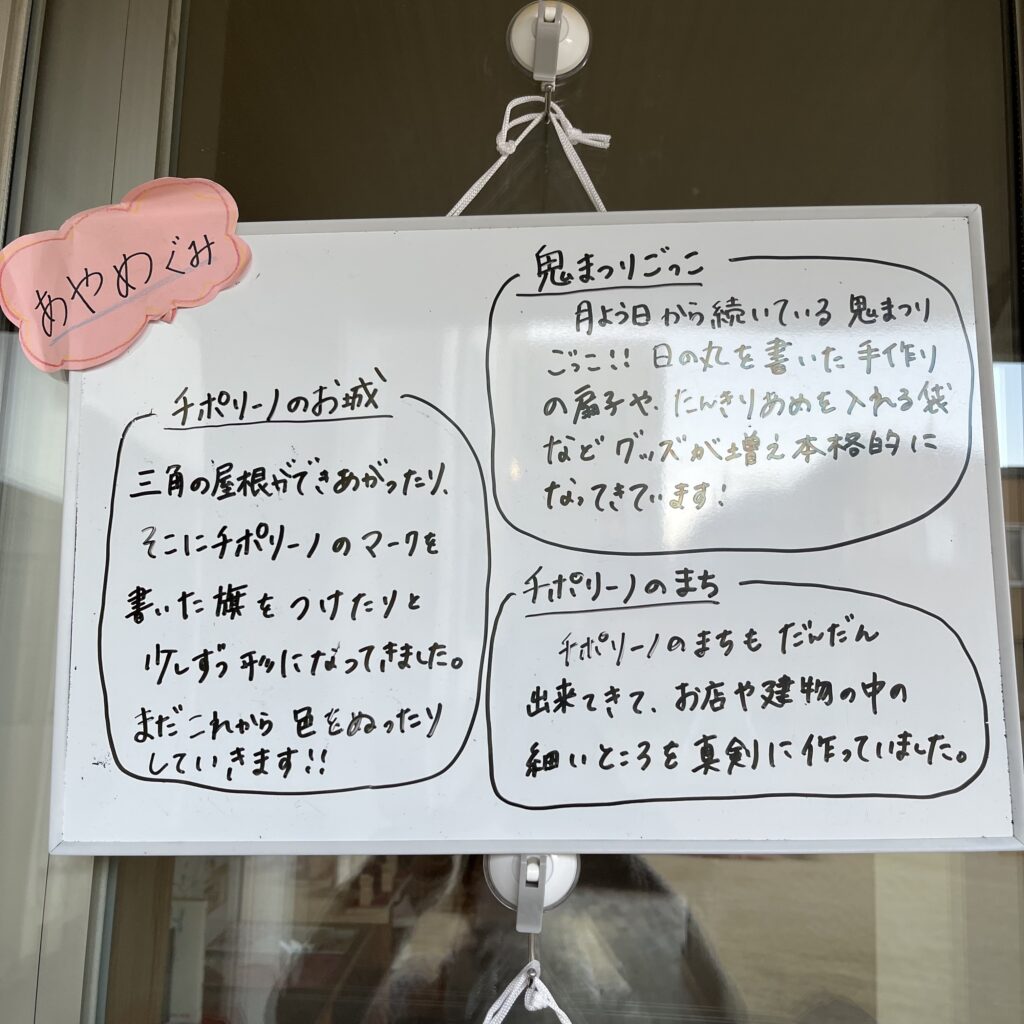 あやめぐみ
チポリーノのお城
三角の屋根ができあがったり、
そこにチポリーノのマークを
書いた旗をつけたりと
少しずつ形になってきました。
まだこれから色をぬったり
していきます!!
鬼まつりごっこ
月よう日から続いている鬼まつり
ごっこ!! 日の丸を書いた手作り
の扇子や、たんきりあめを入れる袋
などグッズが増え本格的に
なってきています!
チポリーノのまち
チポリーノのまちもだんだん
出来てきて、お店や建物の中の
細いところを真剣に作っていました。